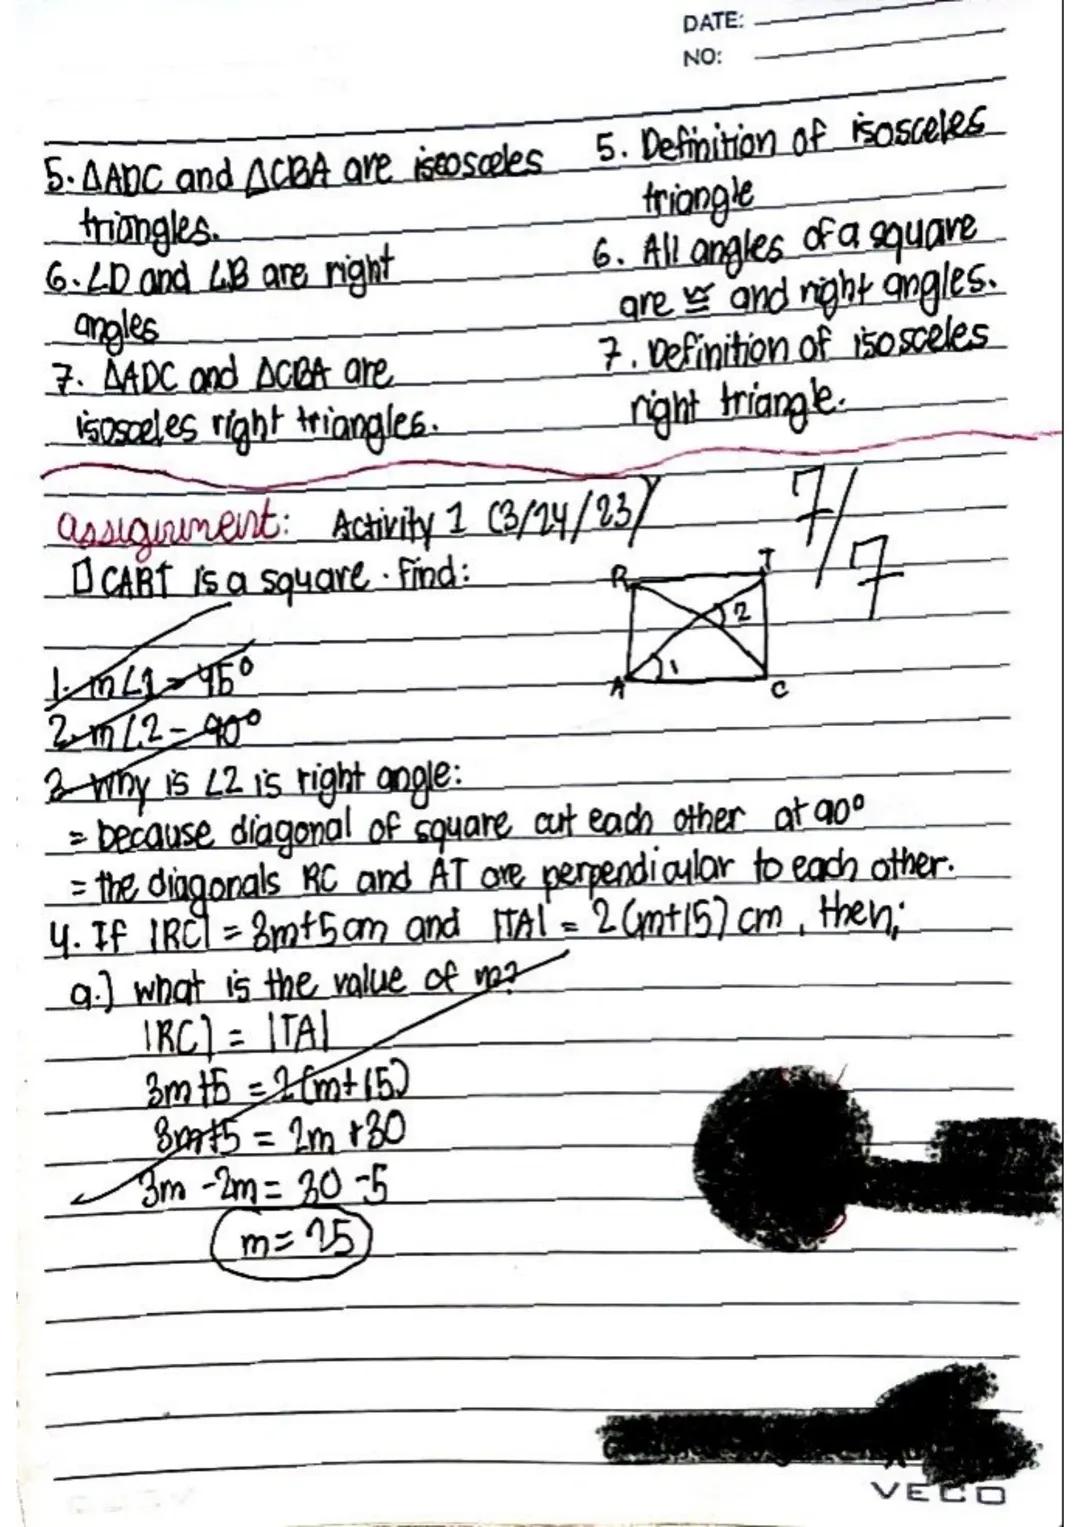 DATE:
NO:
5. ΔADC and ΔCBA are iseosceles 5. Definition of isosceles
triangles. triangle
6. ∠D and ∠B are right 6. All angles of a square
angles are ≅ and right angles.
7. ΔADC and ΔCBA are 7. Definition of isosceles
isosceles right triangles. right triangle.
assignment: Activity 1 (3/24/23) 7/7
□CART is a square. Find:
R T
2
1
A C
1. m∠1 = 45°
2. m∠2 - 90°
3. Why is ∠2 is right angle:
= because diagonal of square cut each other at 90°
= the diagonals RC and AT are perpendicular to each other.
4. If |RC| = 3m+5cm and |TA| = 2(m+15) cm, then;
a.) what is the value of m?
|RC| = |TA|
3m+5 = 2(m+15)
3m+5 = 2m+30
3m - 2m = 30 - 5
m = 25
VECO